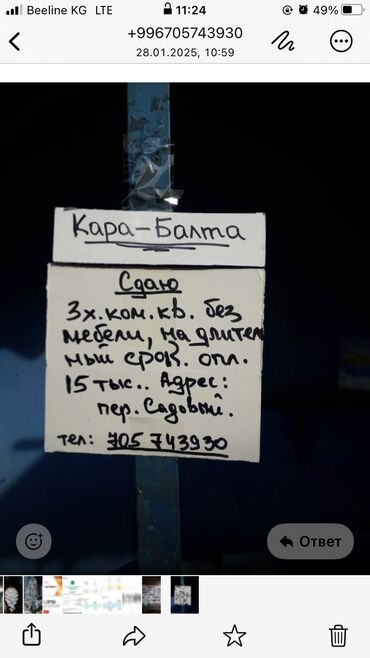 Beeline KG LTE
11:24
49%
+996705743930
28.01.2025, 10:59
Кара-Балта
Сдаю
3х.ком.кв. без
мебели, на длител
ный срок. опл.
15 тыс.. Адрес:
пер. Садовый.
тел: 705 743930
Ответ